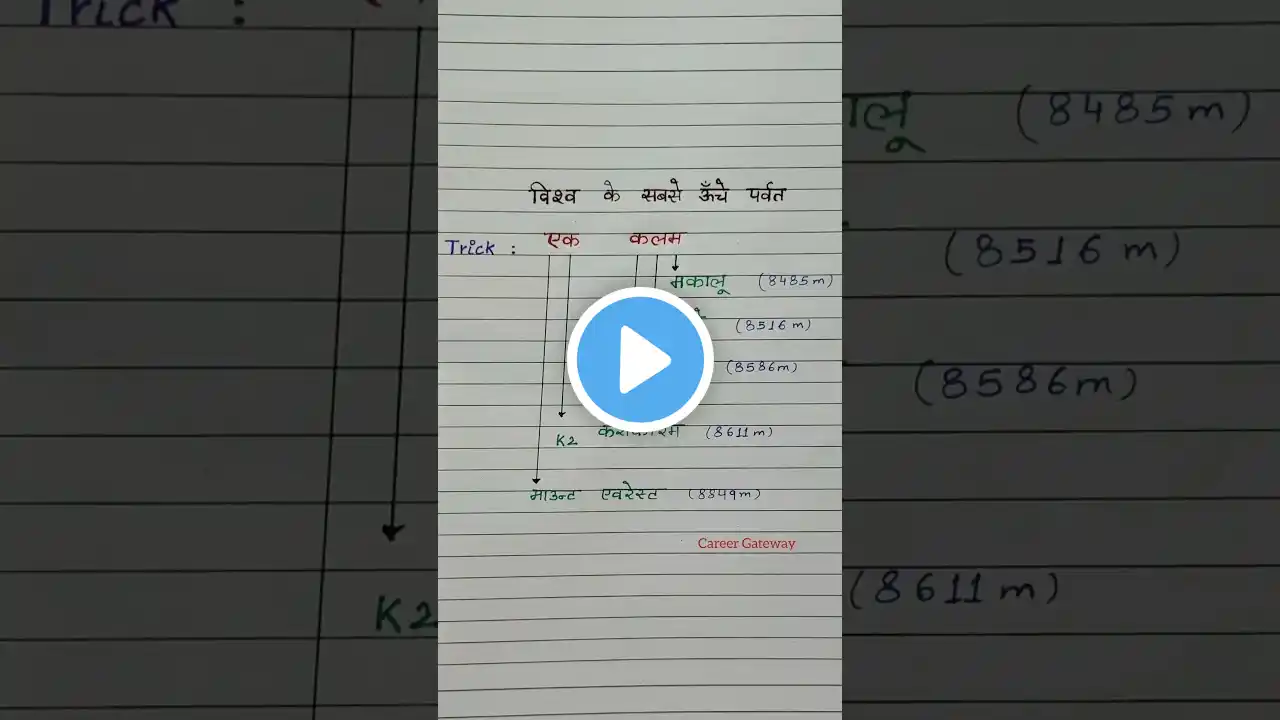 विश्व के सबसे ऊँचे पर्वत
Trick : एक कलम
मकालू (8485m)
(8516m)
(8586m)
K2 (8611m)
माउन्ट एवरेस्ट (8849m)
Career Gateway
Trick :
K2
(8485m)
(8516m)
(8586m)
(8611m)